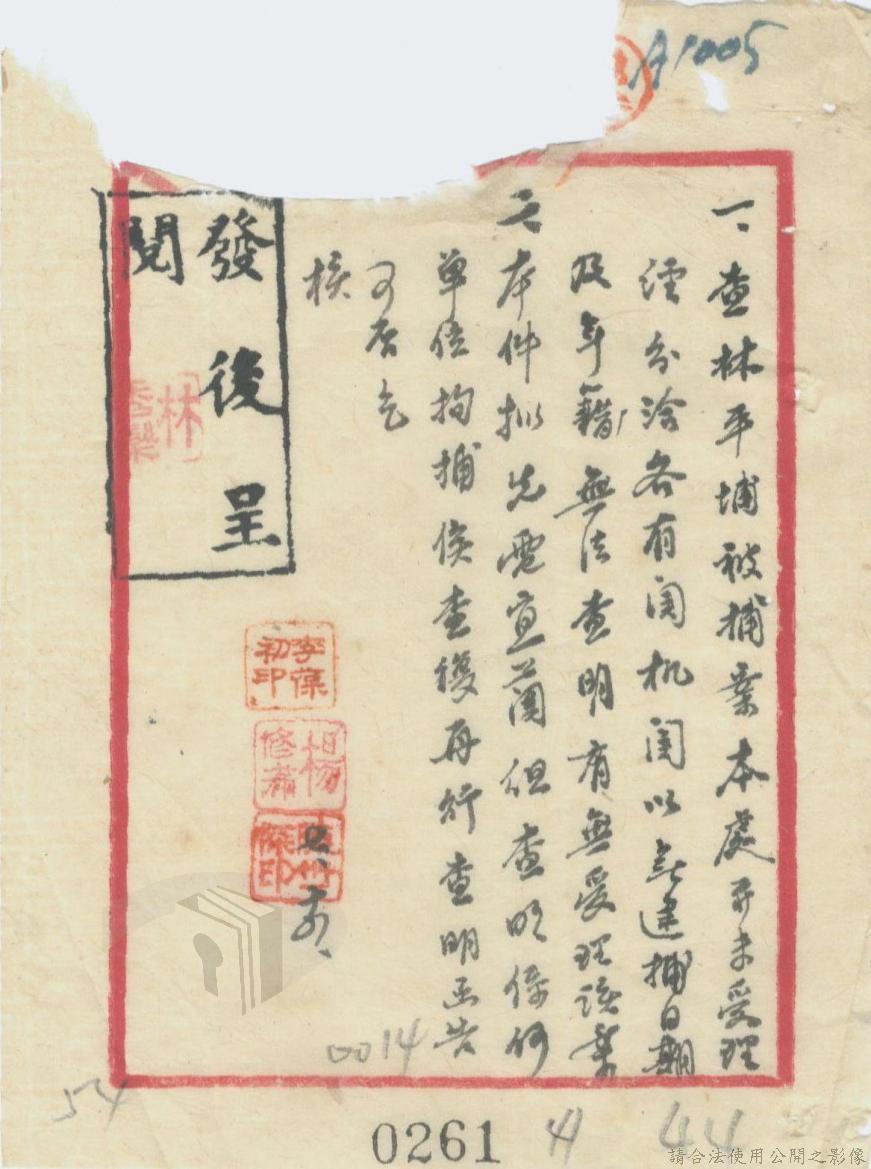 A1005
一、查林平埔被捕案本處并未受理
經分洽各有関机関以無逮捕日期
及年籍無法查明有無受理該案
二、本件拟先電宜蘭但查明係何
單位拘捕俟查獲再行查明函告
可否乞
核
發後呈
閱
林
李葆
初印
楊
修
印
0014
54
0261
44
請合法使用公開之影像